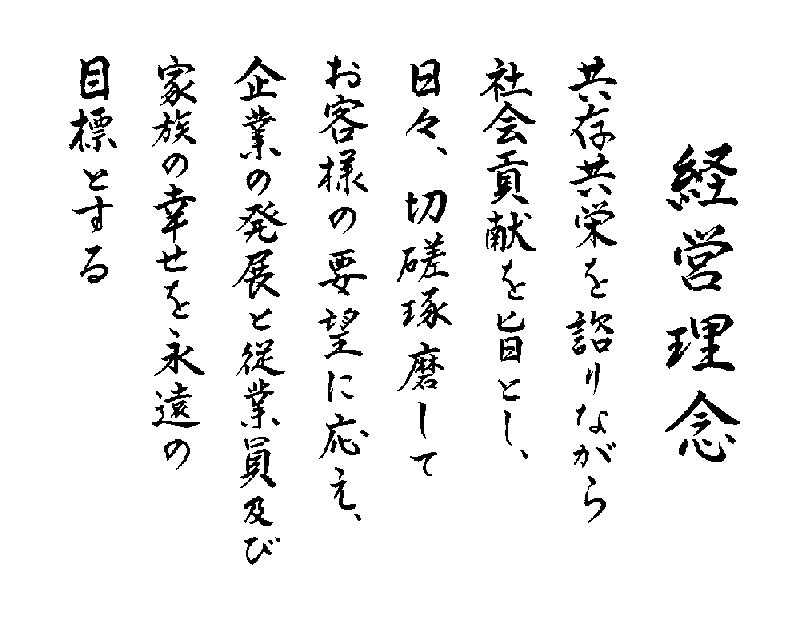 経営理念
共存共栄を諮りながら
社会貢献を旨とし、
日々、切磋琢磨して
お客様の要望に応え、
企業の発展と従業員及び
家族の幸せを永遠の
目標とする